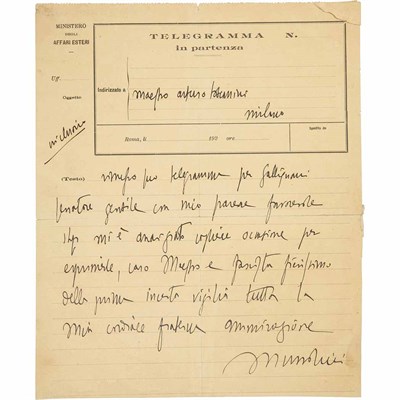 MINISTERO
DEGLI
AFFARI ESTERI
TELEGRAMMA N.
in partenza
Uf.
Oggetto
Indirizzato a
Maestro Arturo Toscanini
Milano
Roma, li 192 ore
Spedito da
(Testo) rimesso suo telegramma per Gallignani
senatore Gentile con mio parere favorevole
mi è cogliere occasione per
esprimerle, caro Maestro e fascista
della prima incerta vigilia tutta la
mia cordiale fraterna ammirazione
Mussolini